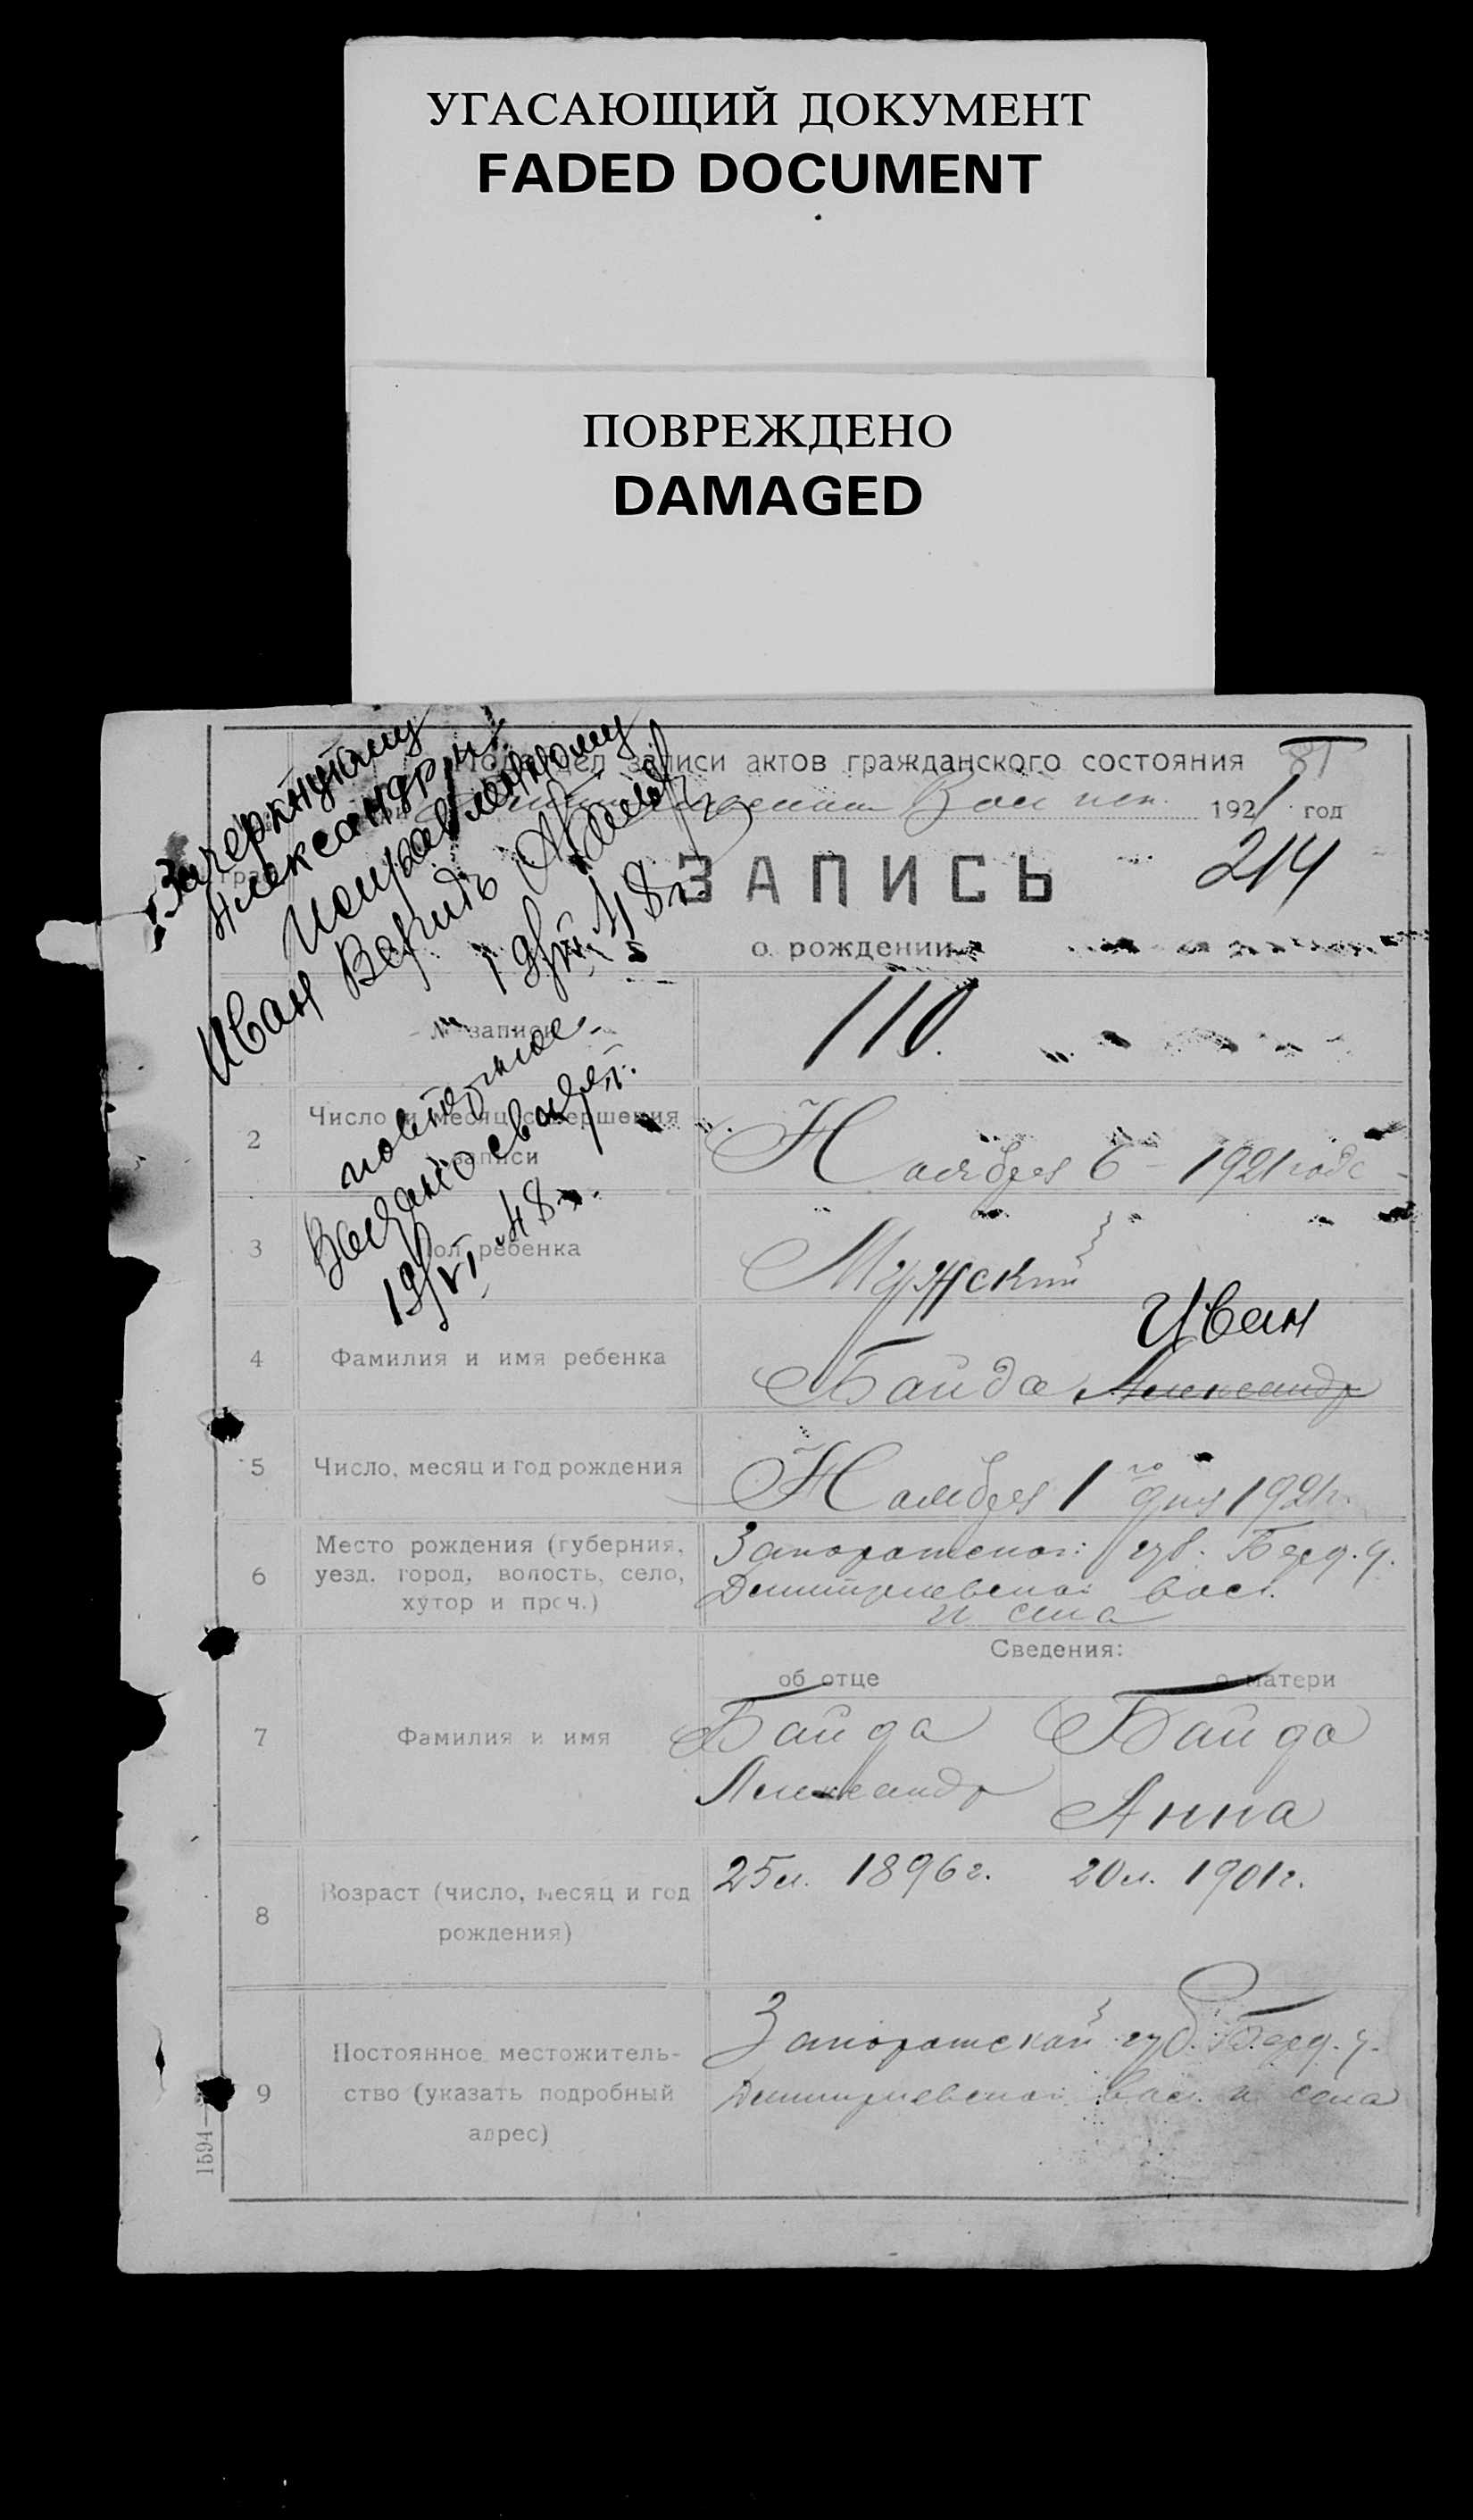 УГАСАЮЩИЙ ДОКУМЕНТ
FADED DOCUMENT
ПОВРЕЖДЕНО
DAMAGED
записи актов гражданского состояния
1921 год
214
ЗАПИСЬ
о рождении
Зачеркнутому
Александр
исправленному
Иван Верить
19/VI 48г.
повторное
Выдано свидет.
19/VI 48г.
№ записи
110.
2
Число и месяц совершения
записи
Ноября 6 – 1921 года
3
Пол ребенка
Мужский
Иван
4
Фамилия и имя ребенка
Байда Александр
5
Число, месяц и год рождения
Ноября 1 го дня 1921г.
6
Место рождения (губерния,
уезд, город, волость, село,
хутор и проч.)
Запорожской губ. Берд. у.
Дмитриевской вол.
и села
Сведения:
об отце
о матери
7
Фамилия и имя
Байда
Александр
Байда
Анна
8
Возраст (число, месяц и год
рождения)
25 л. 1896г.
20 л. 1901г.
9
Постоянное местожитель-
ство (указать подробный
адрес)
Запорожской губ. Берд. у.
Дмитриевской вол. и села
1594—